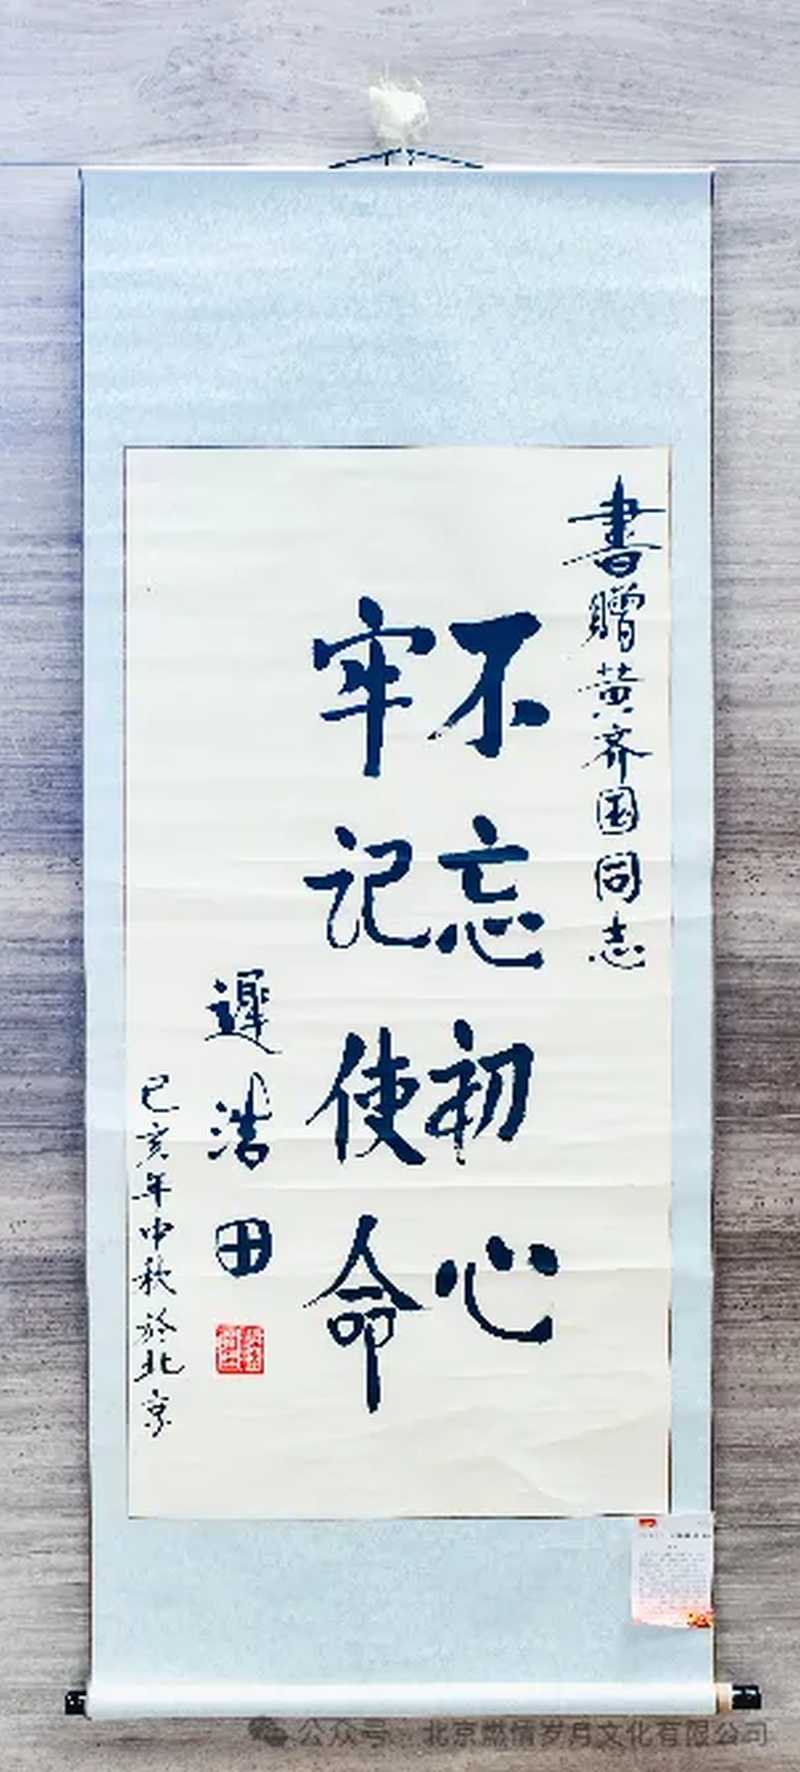 書贈黄齐国同志
不忘初心
牢记使命
遲浩田
己亥年中秋於北京
公众号·北京燃情岁月文化有限公司